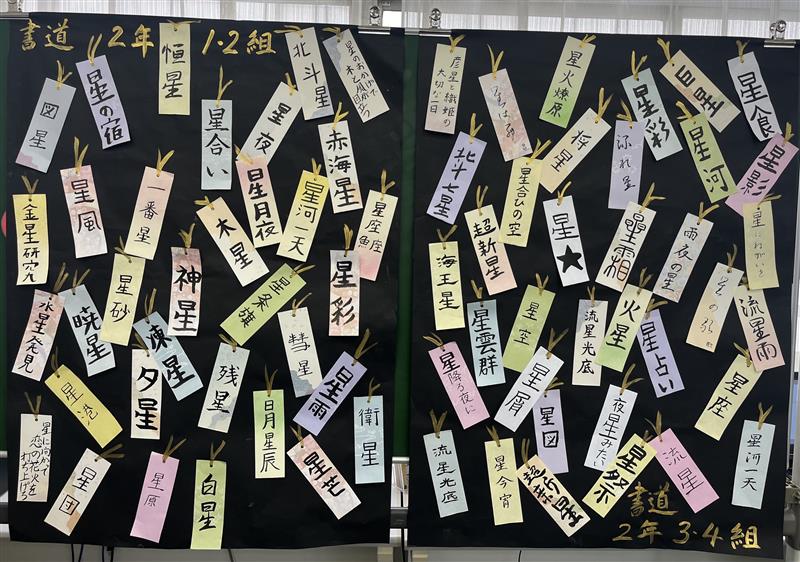 書道 2年 1・2組
恒星
北斗星
図星
星の宿
星合い
星夜
赤海星
金星研究
星風
一番星
木星
星月夜
星河一天
星座鯨
星砂
神星
星条旗
星彩
水星発見
暁星
凍星
彗星
星港
夕星
残星
日月星辰
星雨
衛星
星に向かって
恋の花火を
打ち上げろ
星団
星原
白星
星芒
彦星と織姫の
大切な一日
星火燎原
巨星
星食
星彩
将星
流れ星
星河
星影
北斗七星
星合ひの空
超新星
星★
星霜
雨夜の星
星にねがいを
海王星
星空
流星光底
火星
流星雨
星雲群
星占い
星降る夜に
星屑
星座
星図
夜星みたい
流星光底
星今宵
超新星
星祭
流星
星河一天
書道
2年 3・4組